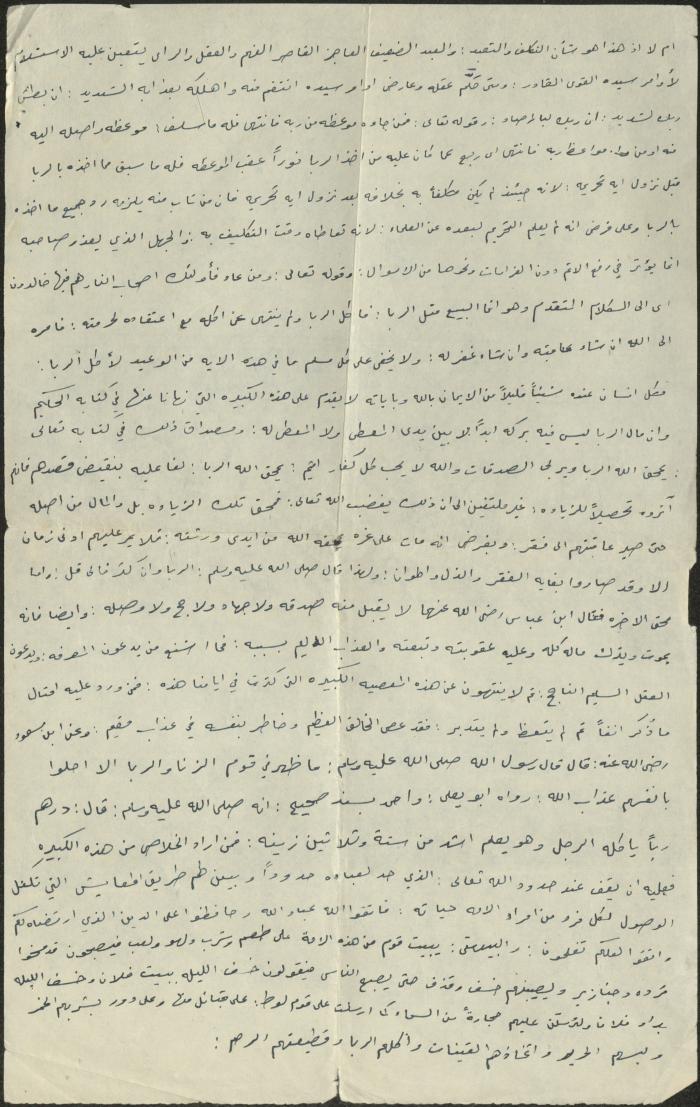 ام لا اذ هذا هو شأن التكلف والتعبد : والعبد الضعيف العاجز القاصر الفهم والعقل والراى يتعين عليه الاستسلام
لأوامر سيده القوى القادر : ومتى حكّم عقله وعارض اوامر سيده انتقم منه واهلكه بعذابه الشديد : ان بطش
ربك لشديد : ان ربك لبالمرصاد : وقوله تعالى : فمن جاءه موعظة من ربه فانتهى فله ما سلف : موعظه واصله اليه
منه او من مواعظ ربه فانتهى اى رجع عما كان عليه من اخذ الربا فوراً عقب الموعظه فله ما سبق مما اخذه بالربا
قبل نزول ايه تحريمه : لانه حينئذ لم يكن مكلفاً به بخلافه بعد نزول ايه تحريمه فان من تاب منه يلزمه رد جميع ما اخذه
بالربا وعلى فرض انه لم يعلم التحريم لبعده عن العلماء : لانه تعاطاه وقت التكليف به : والجهل الذي يعذر صاحبه
انما يؤثر في رفع الاثم دون الغرامات ونحوها من الاموال : وقوله تعالى : ومن عاد فأولئك اصحاب النار هم فيها خالدون
اى الى الكلام المتقدم وهو انما البيع مثل الربا : فاكل الربا ولم ينتهى عن اكله مع اعتقاده لحرمته : فامره
الى الله ان شاء عاقبته وان شاء غفر له : ولا يخفى على كل مسلم ما في هذه الايه من الوعيد لأكل الربا :
فكل انسان عنده شئياً قليلاً من الايمان بالله وباياته لا يقدم على هذه الكبيره التي نهانا عنها في كتابه الحكيم
وان مال الربا ليس فيه بركه ابداً لا بين يدى المعطى ولا المعطى له : ومصداق ذلك في كتابه تعالى
: يمحق الله الربا ويربى الصدقات والله لا يحب كل كفار اثيم : يمحق الله الربا : لفاعليه بنقيض قصدهم فانهم
آثروه تحصيلاً للزياده : غير ملتفتين الى ان ذلك يغضب الله تعالى : فمحق تلك الزياده بل والمال من اصله
حتى صير عاقبتهم الى فقر : وبفرض انه مات على غره محقه الله من ايدى ورثته : فلا يمر عليهم ادنى زمان
الا وقد صاروا بغاية الفقر والذل والهوان : ولهذا قال صلى الله عليه وسلم : الربا وان كثر فالى قل : واما
محق الاخره فقال ابن عباس رضى الله عنهما لا يقبل منه صدقه ولا جهاد ولا حج ولا وصله : وايضا فانه
يموت ويترك ماله كله وعليه عقوبته وتبعته والعذاب الاليم بسببه : فما اشنع من يدعون المعرفه : ويدعون
العقل السليم الناجح : ثم لا ينتهون عن هذه المعصيه الكبيره التي كثرت في ايامنا هذه : فمن ورد عليه امثال
ما ذكر انفاً ثم لم يتعظ ولم يتدبر : فقد عصى الخالق العظيم وخاطر بنفسه في عذاب مقيم : وعن ابن مسعود
رضى الله عنه : قال قال رسول الله صلى الله عليه وسلم : ما ظهر في قوم الزنا والربا الا احلوا
بانفسهم عذاب الله : رواه ابو يعلى : واحمد بسند صحيح : انه صلى الله عليه وسلم : قال : درهم
رباً يأكله الرجل وهو يعلم اشد من ستة وثلاثين زينه : فمن اراد الخلاص من هذه الكبيره
فعليه ان يقف عند حدود الله تعالى : الذي حد لعباده حدوداً وبين لهم طريق المعايش التي تكفل
الوصول لكل فرد من افراد الامه حياته : فاتقوا الله عباد الله وحافظوا على الدين الذى ارتضاه لكم
واتقوا لعلكم تفلحون : والبيهقى : يبيت قوم من هذه الامة على طعم وشرب ولهو ولعب فيصبحون قد مسخوا
قرده وخنازير وليصيبنهم خسف وقذف حتى يصبح الناس فيقولون خسف الليله ببيت فلان وخسف الليله
بدار فلان ولترسلن عليهم حجارة من السماء كما ارسلت على قوم لوط : على قبائل منها وعلى دور بشربهم الخمر
ولبسهم الحرير واتخاذهم القينات واكلهم الربا وقطيعتهم الرحم :